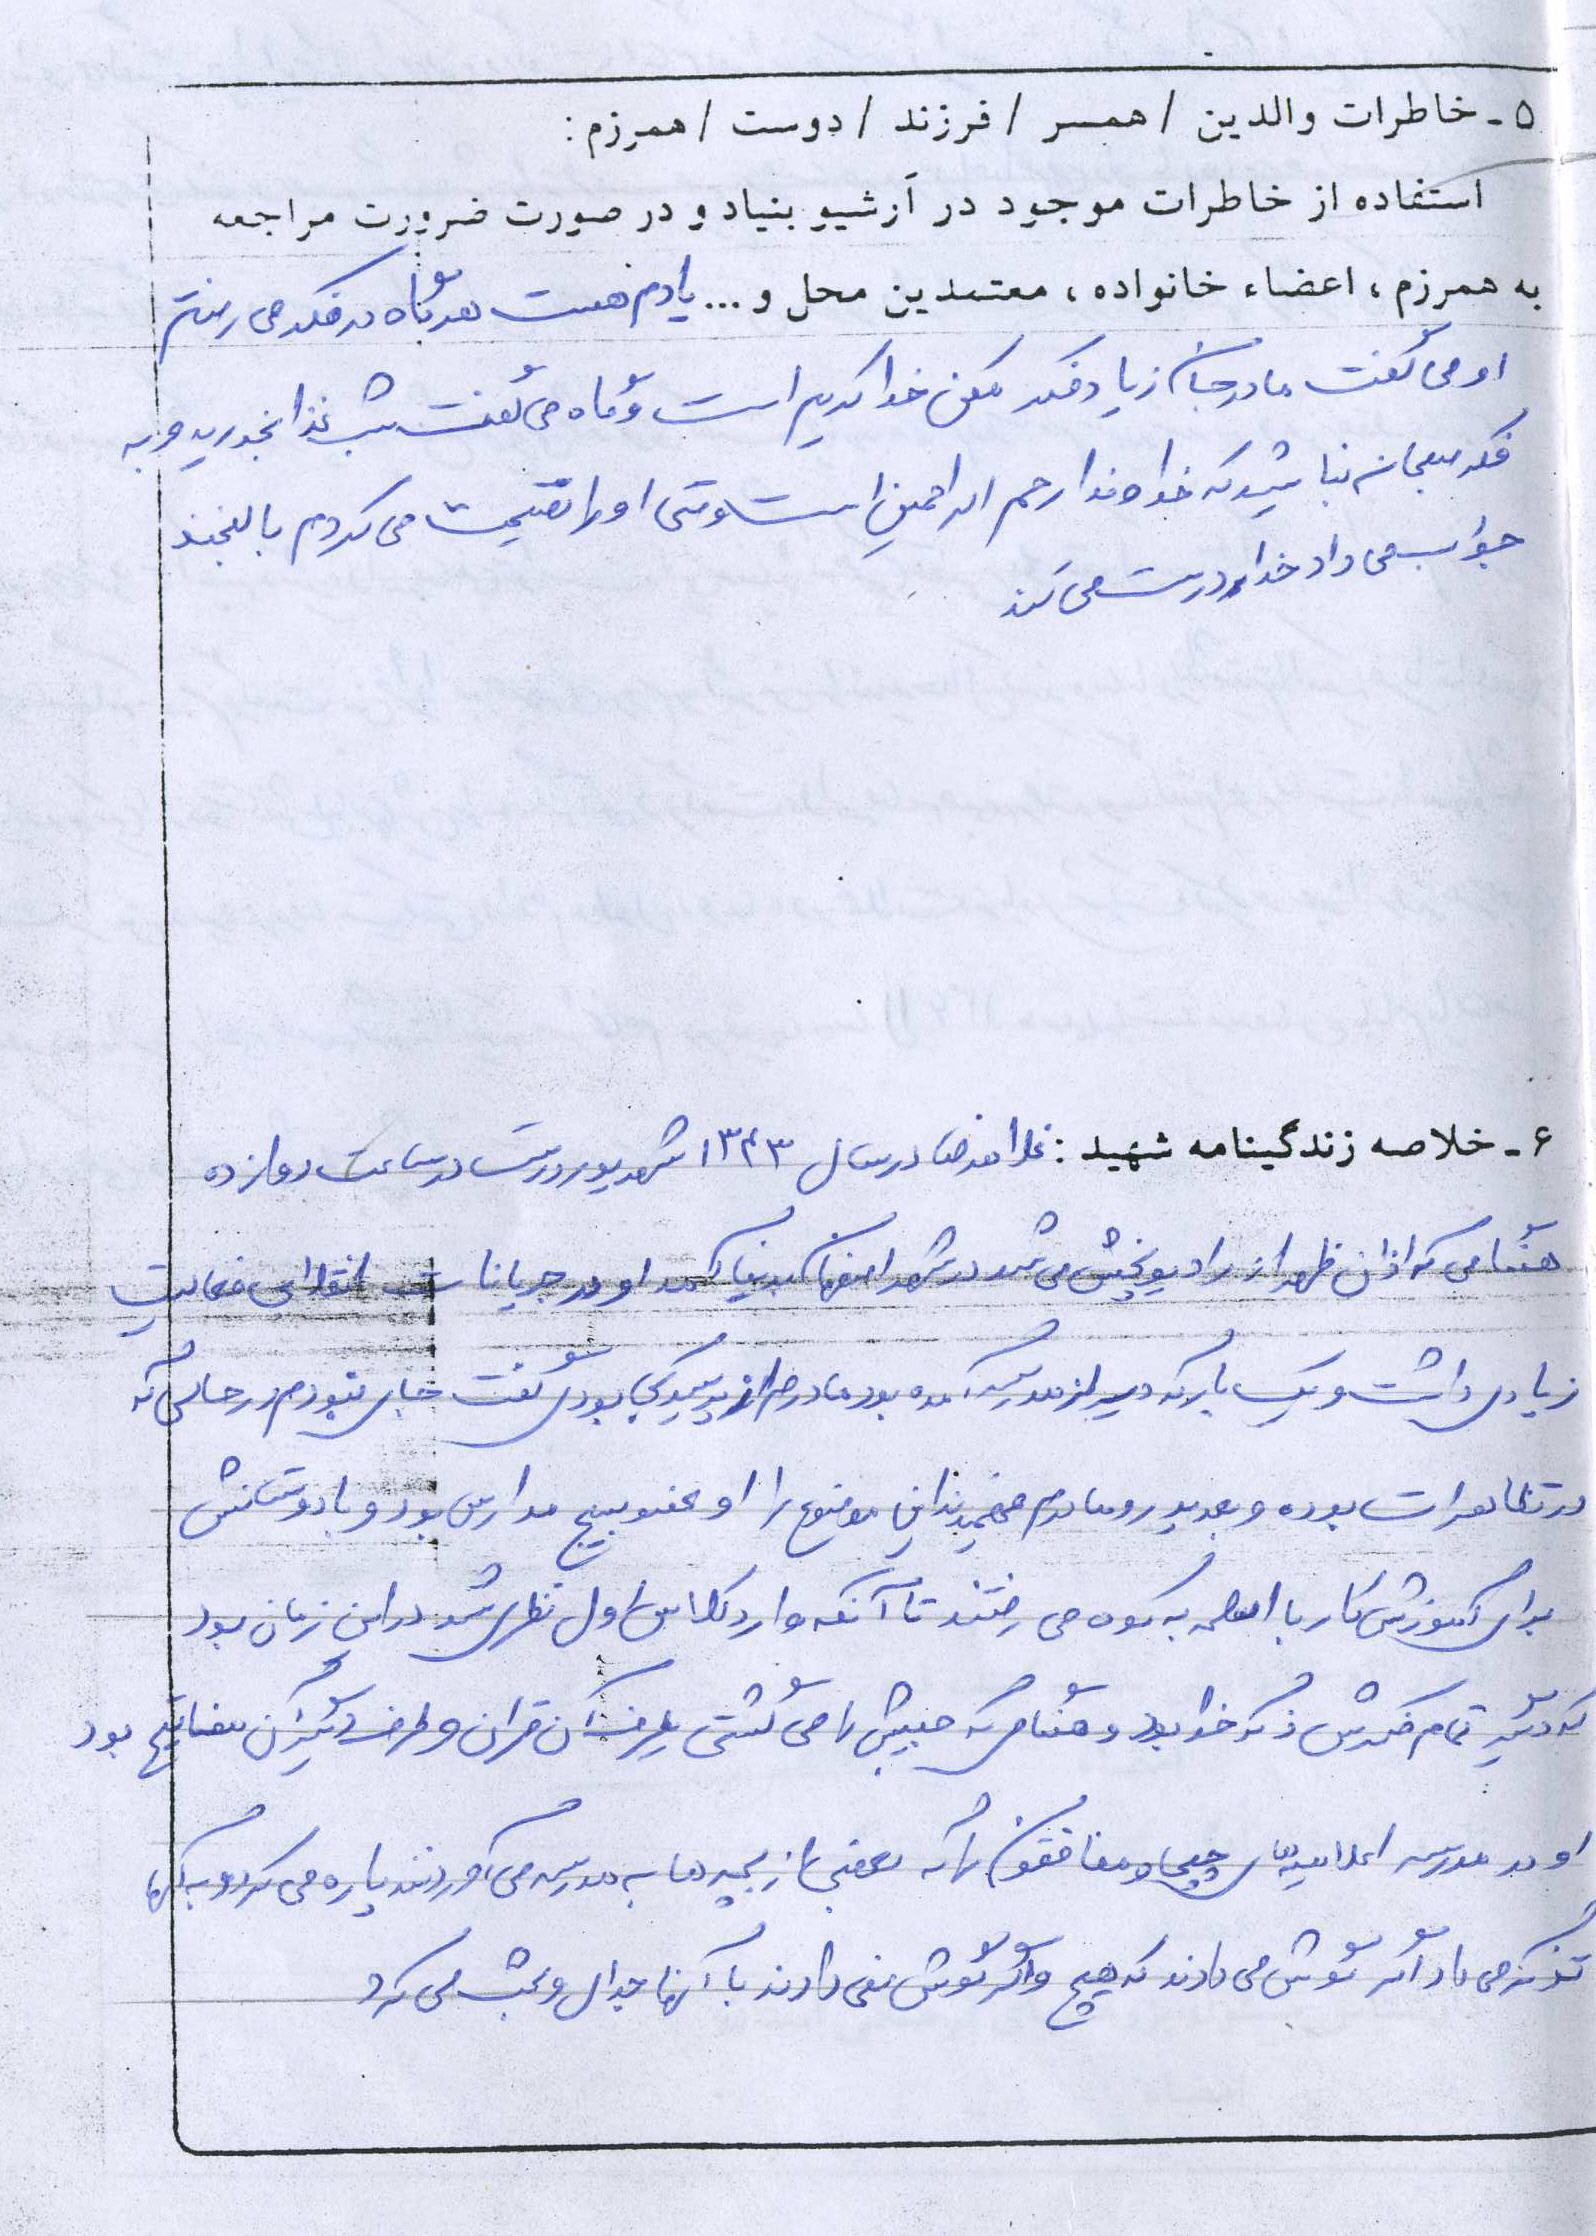 ۵ - خاطرات والدین / همسر / فرزند / دوست / همرزم :
استفاده از خاطرات موجود در آرشیو بنیاد و در صورت ضرورت مراجعه
به همرزم ، اعضاء خانواده ، معتمدین محل و ... یادم هست هرگاه در فکر می رفتم
او می گفت مادرجان زیاد فکر مکن خدا کریم است و گاه می گفت شب غذا بخورید و به
فکر صبحانه نباشید که خداوند ارحم الراحمین است وقتی او را نصیحت می کردم با لبخند
جواب می داد خدا درست می کند
۶ - خلاصه زندگینامه شهید : غلامرضا در سال ۱۳۴۳ شهریور درست در ساعت دوازده
هنگامی که اذان ظهر از رادیو پخش می شد در شهر اصفهان بدنیا آمد او در جریانات انقلابی فعالیت
زیادی داشت و یک بار که دیر از مدرسه آمده بود مادرم از پرسید کجا بودی گفت جایی نبودم در حالی که
در تظاهرات بوده و پدر و مادرم فهمیدند این موضوع را او عضو بسیج مدارس بود و با دوستانش
برای آموزش کار با اسلحه به کوه می رفتند تا آنکه وارد کلاس اول نظری شد در این زمان بود
که دیگر تمام فکرش ذکر خدا بود و هنگامی که جیبش را می گشتی یطرف آن قران و طرف دیگر آن مفاتیح بود
او در مدرسه اعلامیه های چپی ها و منافقون را که بعضی از بچه ها به مدرسه می آوردند پاره می کرد و به آنها
تذکر می داد اگر گوش می دادند که هیچ و اگر گوش نمی دادند با آنها جدال و بحث می کرد